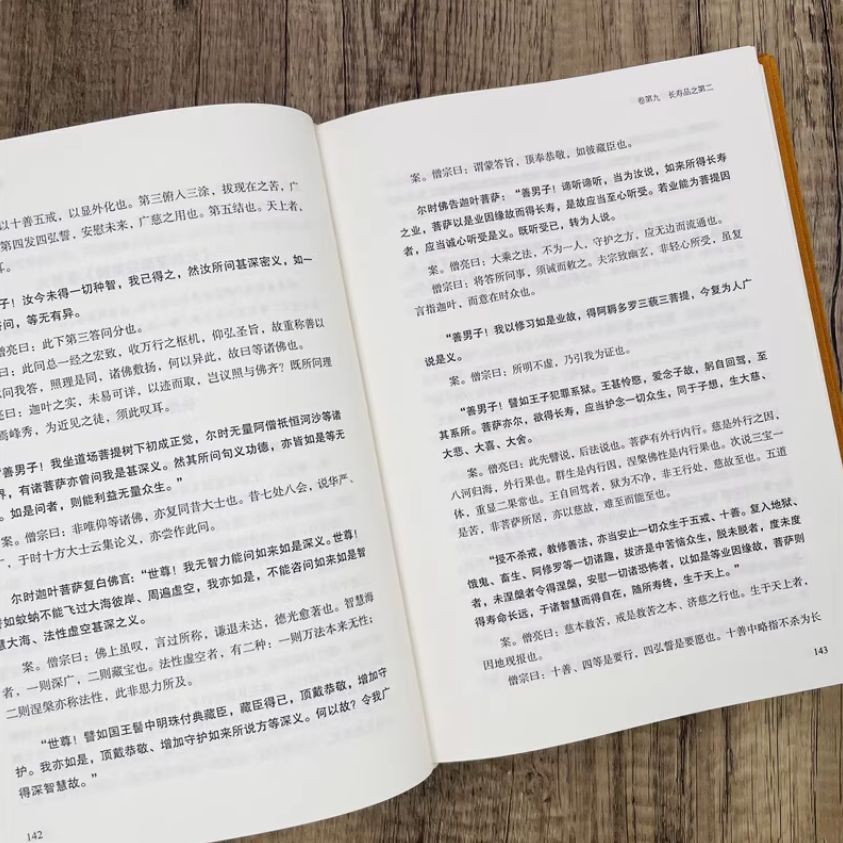 以十善五戒，以显外化也。第三俯入三涂，拔现在之苦，广
第四发四弘誓，安慰未来，广慈之用也。第五结也。天上者，
耳。
子！汝今未得一切种智，我已得之，然汝所问甚深密义，如一
答问，等无有异。
亮曰：此下第三答问分也。
曰：此问总一经之宏致，收万行之枢机，仰弘圣旨，故重称善以
问我答，照理是同，诸佛敷扬，何以异此，故曰等诸佛也。
曰：迦叶之实，未易可详，以迹而取，岂议照与佛齐？既所问理
峰秀，为近见之徒，须此叹耳。
善男子！我坐道场菩提树下初成正觉，尔时无量阿僧祇恒河沙等诸
界，有诸菩萨亦曾问我是甚深义。然其所问句义功德，亦皆如是等无
。如是问者，则能利益无量众生。”
案。僧宗曰：非唯仰等诸佛，亦复同昔大士也。昔七处八会，说华严。
，于时十方大士云集论义，亦尝作此问。
尔时迦叶菩萨复白佛言：“世尊！我无智力能问如来如是深义。世尊！
譬如蚊蚋不能飞过大海彼岸、周遍虚空，我亦如是，不能咨问如来如是智
慧大海、法性虚空甚深之义。
案。僧宗曰：佛上虽叹，言过所称，谦退未达，德光愈著也。智慧海
者，一则深广，二则藏宝也。法性虚空者，有二种：一则万法本来无性；
二则涅槃亦称法性，此非思力所及。
“世尊！譬如国王髻中明珠付典藏臣，藏臣得已，顶戴恭敬，增加守
护。我亦如是，顶戴恭敬、增加守护如来所说方等深义。何以故？令我广
得深智慧故。”
142
卷第九 长寿品之第二
案。僧宗曰：谓蒙答旨，顶奉恭敬，如彼藏臣也。
尔时佛告迦叶菩萨：“善男子！谛听谛听，当为汝说，如来所得长寿
之业，菩萨以是业因缘故而得长寿，是故应当至心听受。若业能为菩提因
者，应当诚心听受是义。既听受已，转为人说。
案。僧亮曰：大乘之法，不为一人，守护之方，应无边而流通也。
僧宗曰：将答所问事，须诫而敕之。夫宗致幽玄，非轻心所受，虽复
言指迦叶，而意在时众也。
“善男子！我以修习如是业故，得阿耨多罗三藐三菩提，今复为人广
说是义。
案。僧宗曰：所明不虚，乃引我为证也。
“善男子！譬如王子犯罪系狱。王甚怜愍，爱念子故，躬自回驾，至
其系所。菩萨亦尔，欲得长寿，应当护念一切众生，同于子想，生大慈、
大悲、大喜、大舍。
案。僧亮曰：此先譬说，后法说也。菩萨有外行内行。慈是外行之因，
八河归海，外行果也。群生是内行因，涅槃佛性是内行果也。次说三宝一
体，重显二果常也。王自回驾者，狱为不净，非王行处，慈故至也。五道
是苦，非菩萨所居，亦以慈故，难至而能至也。
“授不杀戒，教修善法，亦当安止一切众生于五戒、十善。复入地狱、
饿鬼、畜生、阿修罗等一切诸趣，拔济是中苦恼众生，脱未脱者，度未度
者，未涅槃者令得涅槃，安慰一切诸恐怖者，以如是等业因缘故，菩萨则
得寿命长远，于诸智慧而得自在，随所寿终，生于天上。”
案。僧亮曰：慈本救苦，戒是救苦之本、济慈之行也。生于天上者，
因地现报也。
僧宗曰：十善、四等是要行，四弘誓是要愿也。十善中略指不杀为长
143